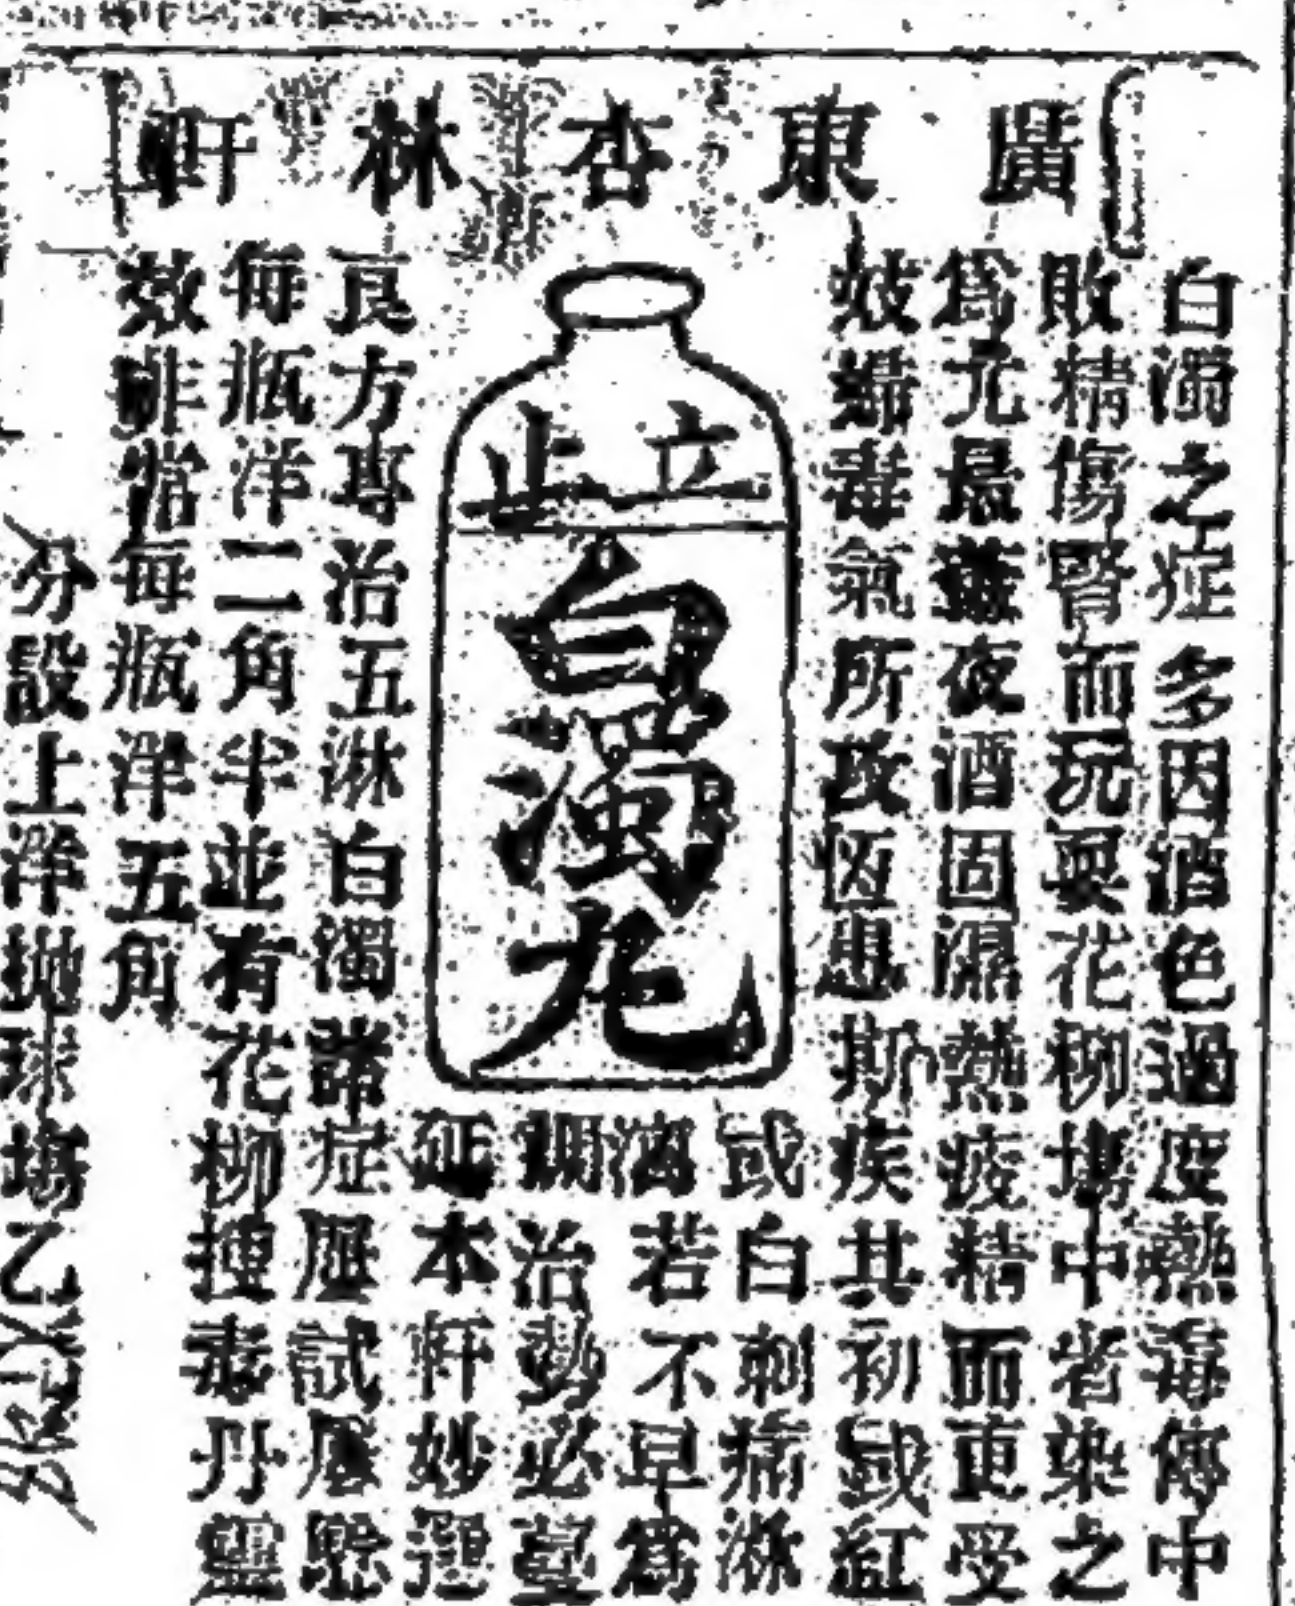 廣東杏林軒
白濁之症多因酒色過度熱毒傳中
敗精傷腎而玩耍花柳塲中者染之
爲尤最兼夜酒固濕熱疲精而更受
妓婦毒氣所攻恆患斯疾其初或紅
或白刺痛淋
漓若不早爲
調治勢必蔓
延本軒妙選
立止
白濁丸
良方專治五淋白濁諸症屢試屢驗
每瓶洋二角半並有花柳摟毒丹靈
效非常每瓶洋五角
分設上洋拋球塲乙